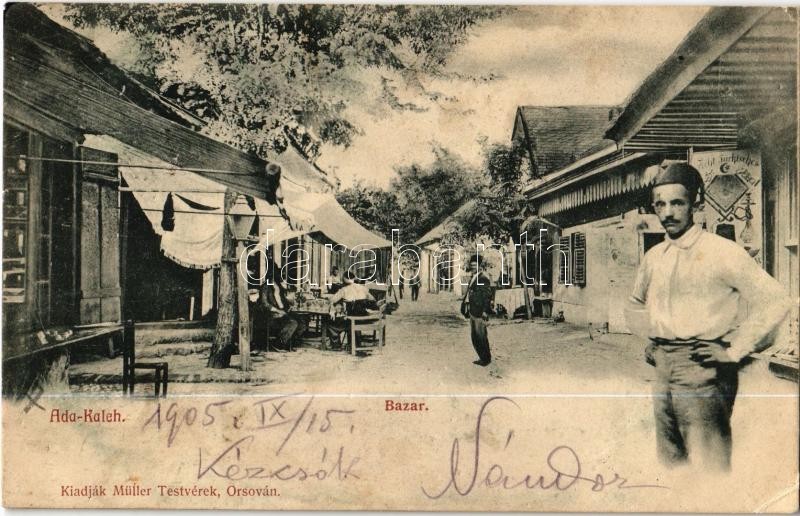 Echt türkisches
darabanth
Ada-Kaleh.
Bazar.
1905. IX/15.
Kézcsók
Nándor
Kiadják Müller Testvérek, Orsován.